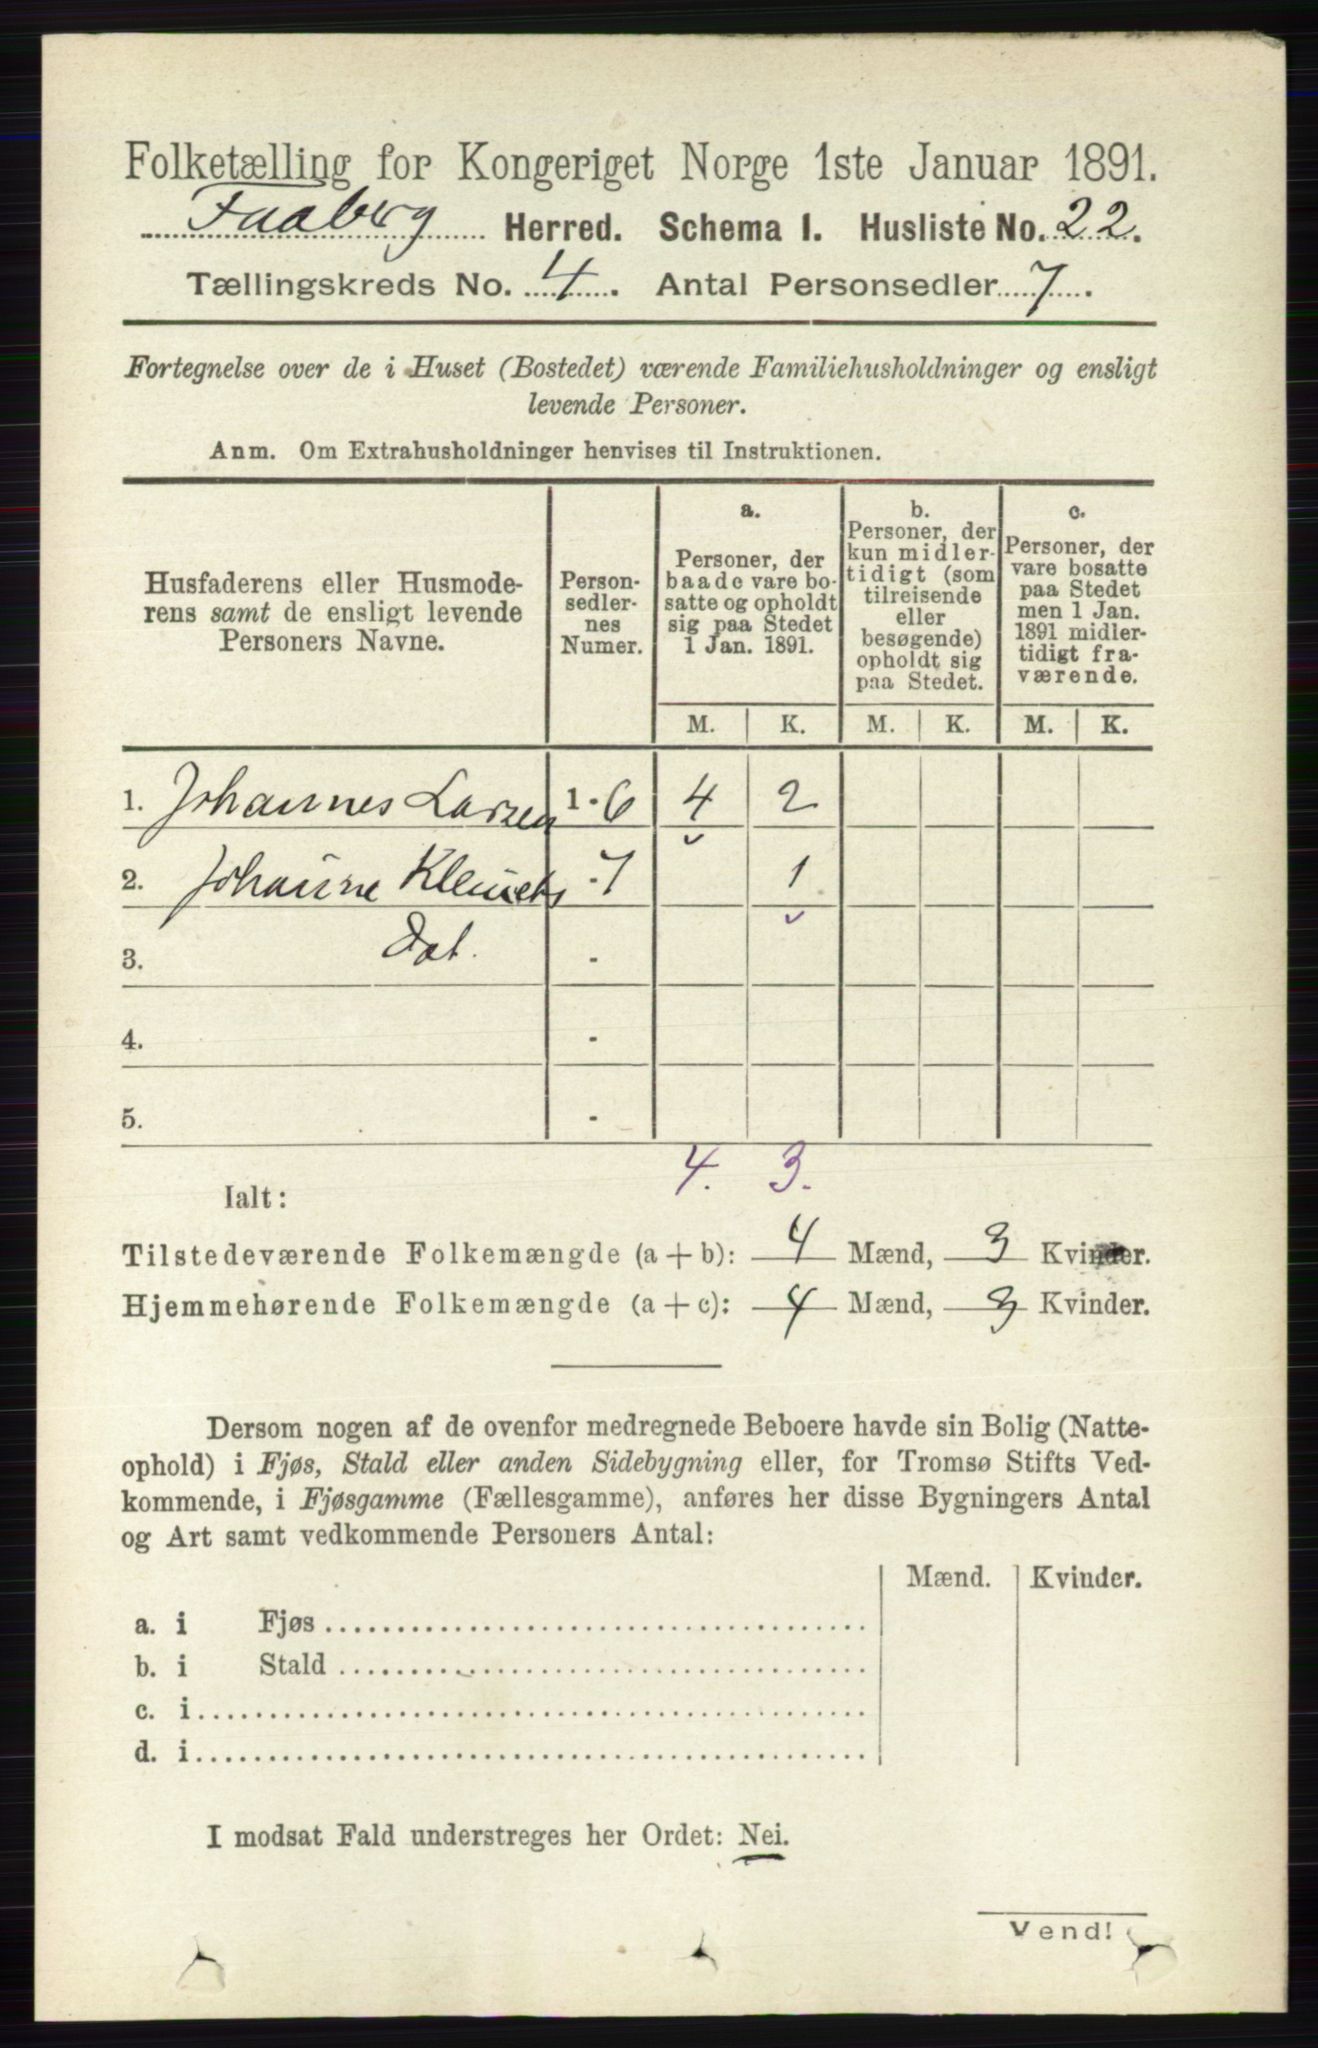 Folketælling for Kongeriget Norge 1ste Januar 1891.
Faaberg Herred. Schema 1. Husliste No. 22.
Tællingskreds No. 4. Antal Personsedler 7.
Fortegnelse over de i Huset (Bostedet) værende Familiehusholdninger og ensligt
levende Personer.
Anm. Om Extrahusholdninger henvises til Instruktionen.
Husfaderens eller Husmode-
rens samt de ensligt levende
Personers Navne.
Person-
sedler-
nes
Numer.
a.
Personer, der
baade vare bo-
satte og opholdt
sig paa Stedet
1 Jan. 1891.
b.
Personer, der
kun midler-
tidigt (som
tilreisende
eller
besøgende)
opholdt sig
paa Stedet.
c.
Personer, der
vare bosatte
paa Stedet
men 1 Jan.
1891 midler-
tidigt fra-
værende.
M. K. M. K. M. K.
1. Johannes Larsen 1-6 4 2
2. Johanne Klemets -7 1
3. Dat. -
4. -
5. -
4. 3.
Ialt:
Tilstedeværende Folkemængde (a + b): 4 Mænd, 3 Kvinder.
Hjemmehørende Folkemængde (a + c): 4 Mænd, 3 Kvinder.
Dersom nogen af de ovenfor medregnede Beboere havde sin Bolig (Natte-
ophold) i Fjøs, Stald eller anden Sidebygning eller, for Tromsø Stifts Ved-
kommende, i Fjøsgamme (Fællesgamme), anføres her disse Bygningers Antal
og Art samt vedkommende Personers Antal:
Mænd. Kvinder.
a. i Fjøs
b. i Stald
c. i
d. i
I modsat Fald understreges her Ordet: Nei.
Vend!